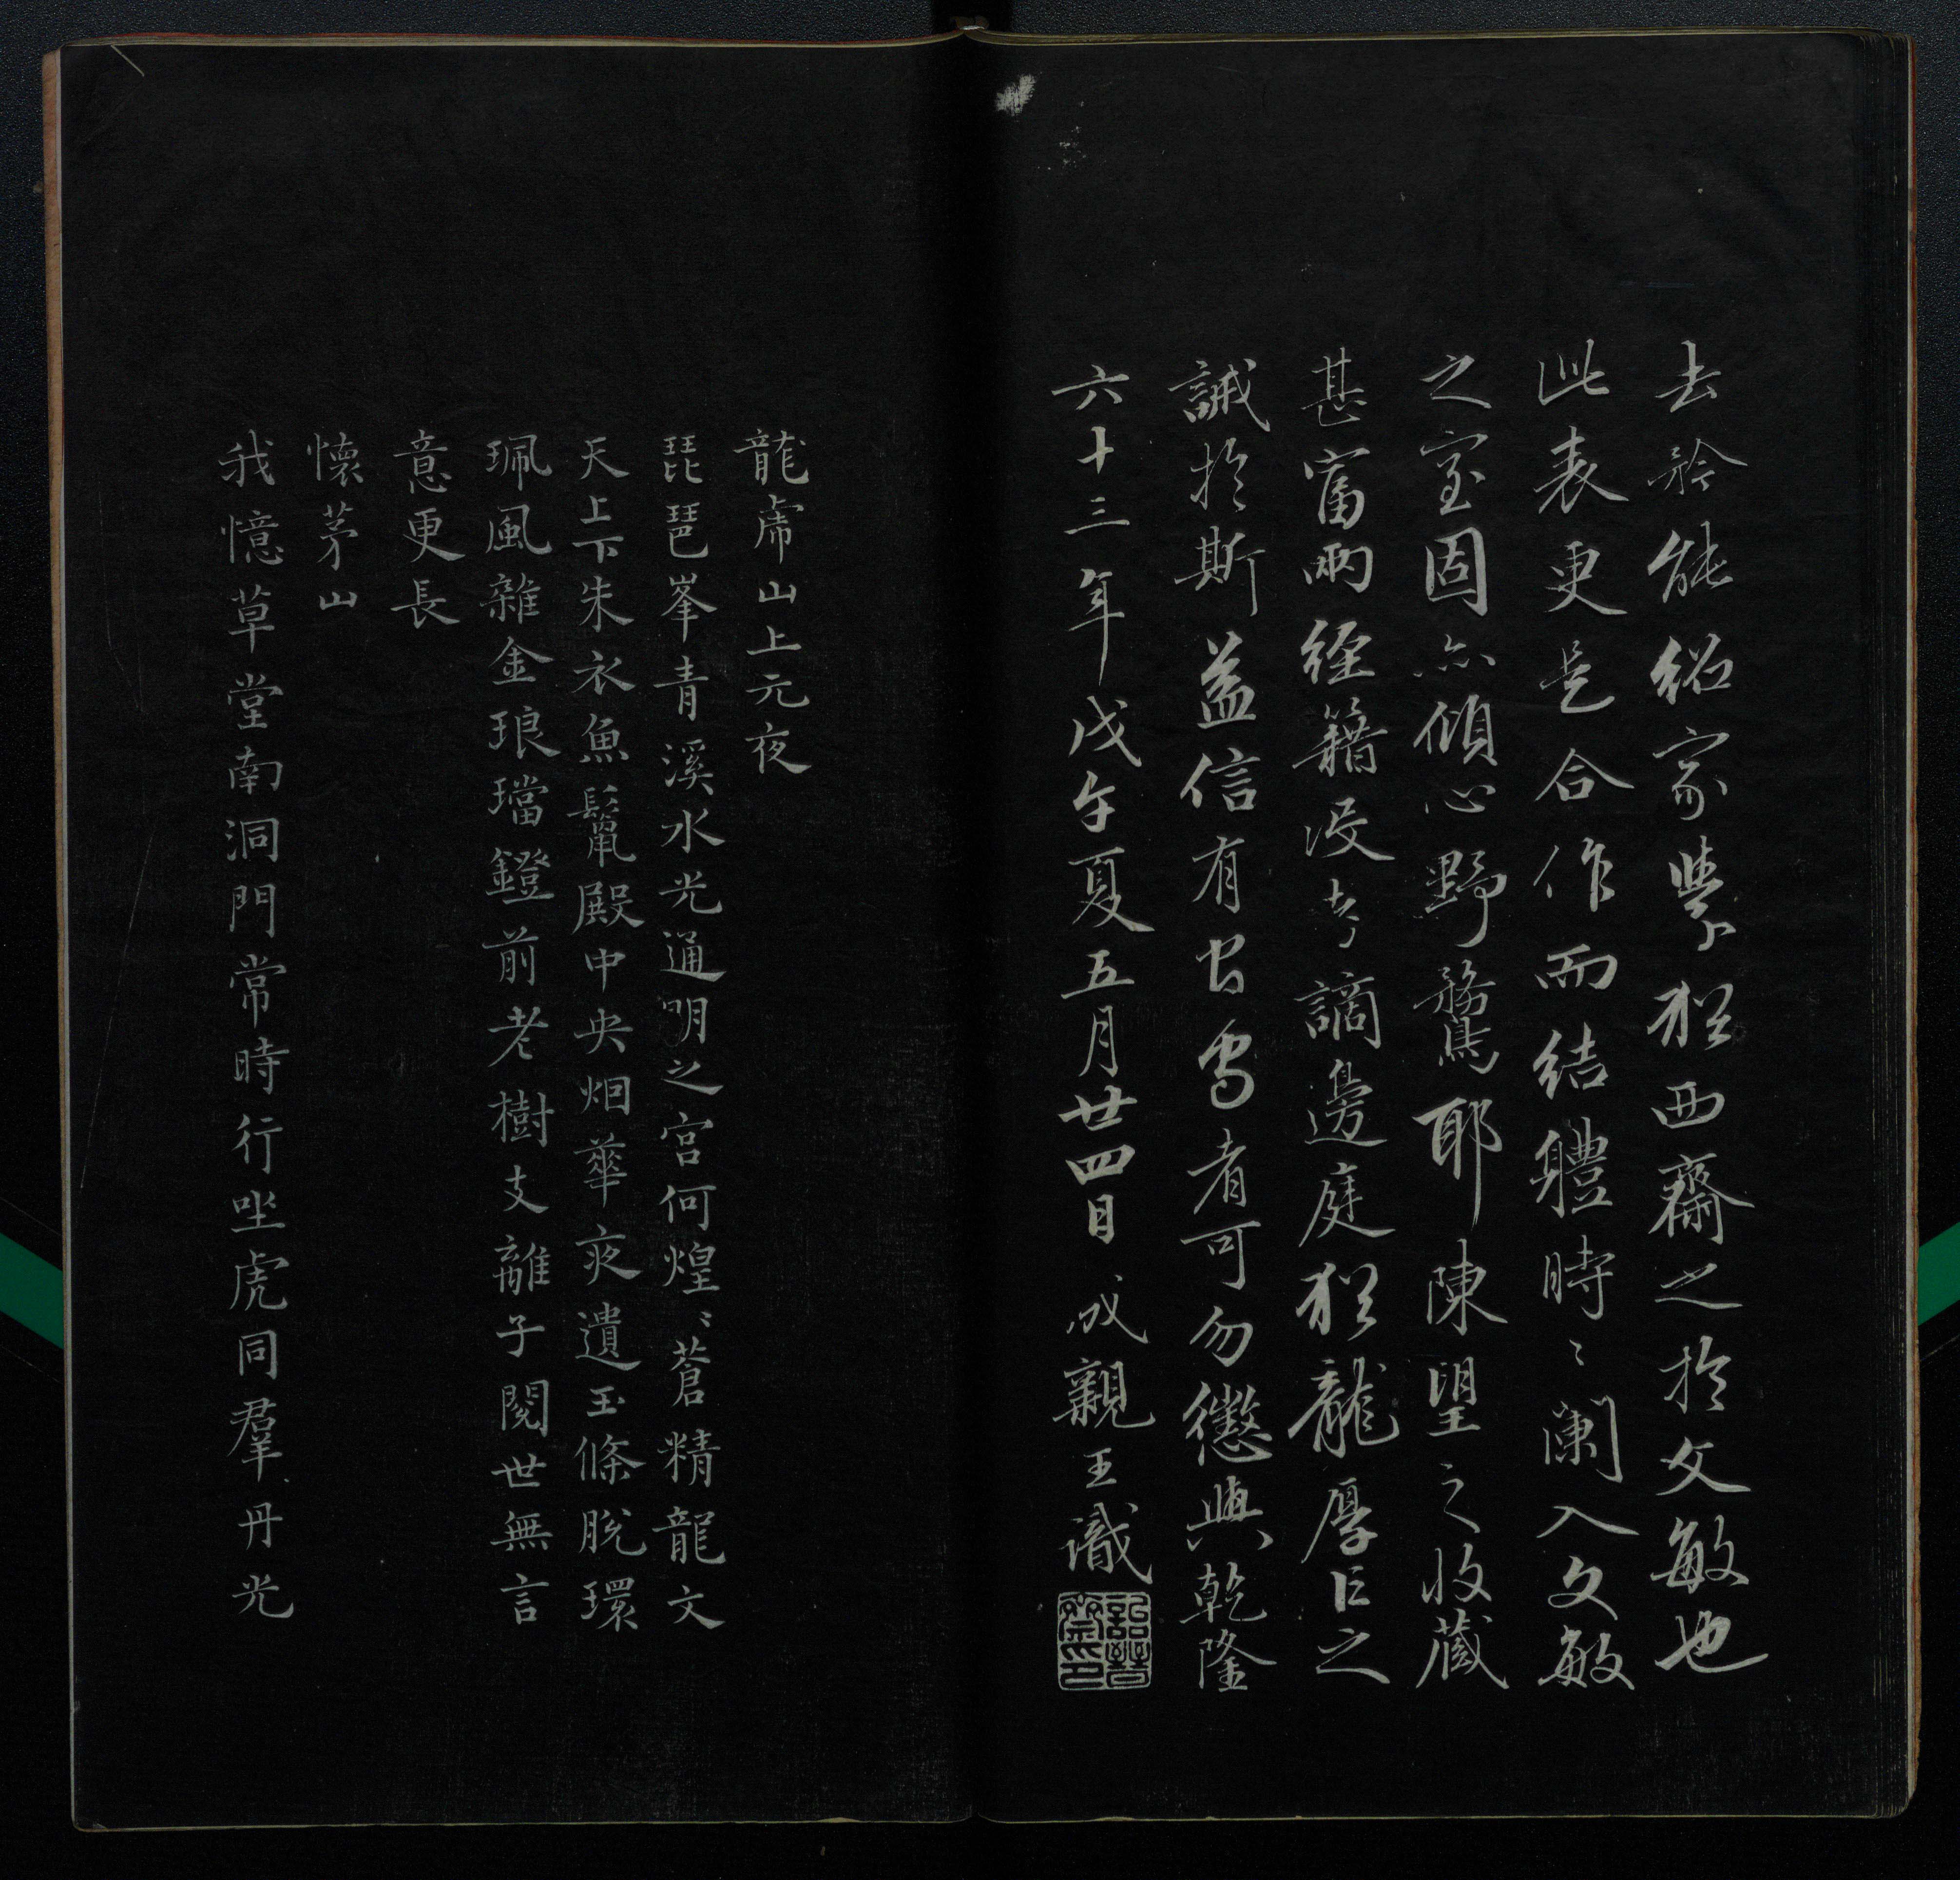 去矜能紹家學猶西齋之於文敏也
此表更是合作而結體時〻闌入文敏
之室固亦傾心野鶩耶陳望之收藏
甚富兩經籍沒七謫邊庭猶龍厚臣之
誡於斯益信有書癖者可勿懲與乾隆
六十三年戊午夏五月廿四日成親王識
詒晉齋印
龍虎山上元夜
琵琶峯青溪水光通明之宮何煌〻蒼精龍文
天上下朱衣魚鬣殿中央烟華夜遺玉條脫環
珮風雜金琅璫鐙前老樹支離子閱世無言
意更長
懷茅山
我憶草堂南洞門常時行坐虎同羣丹光